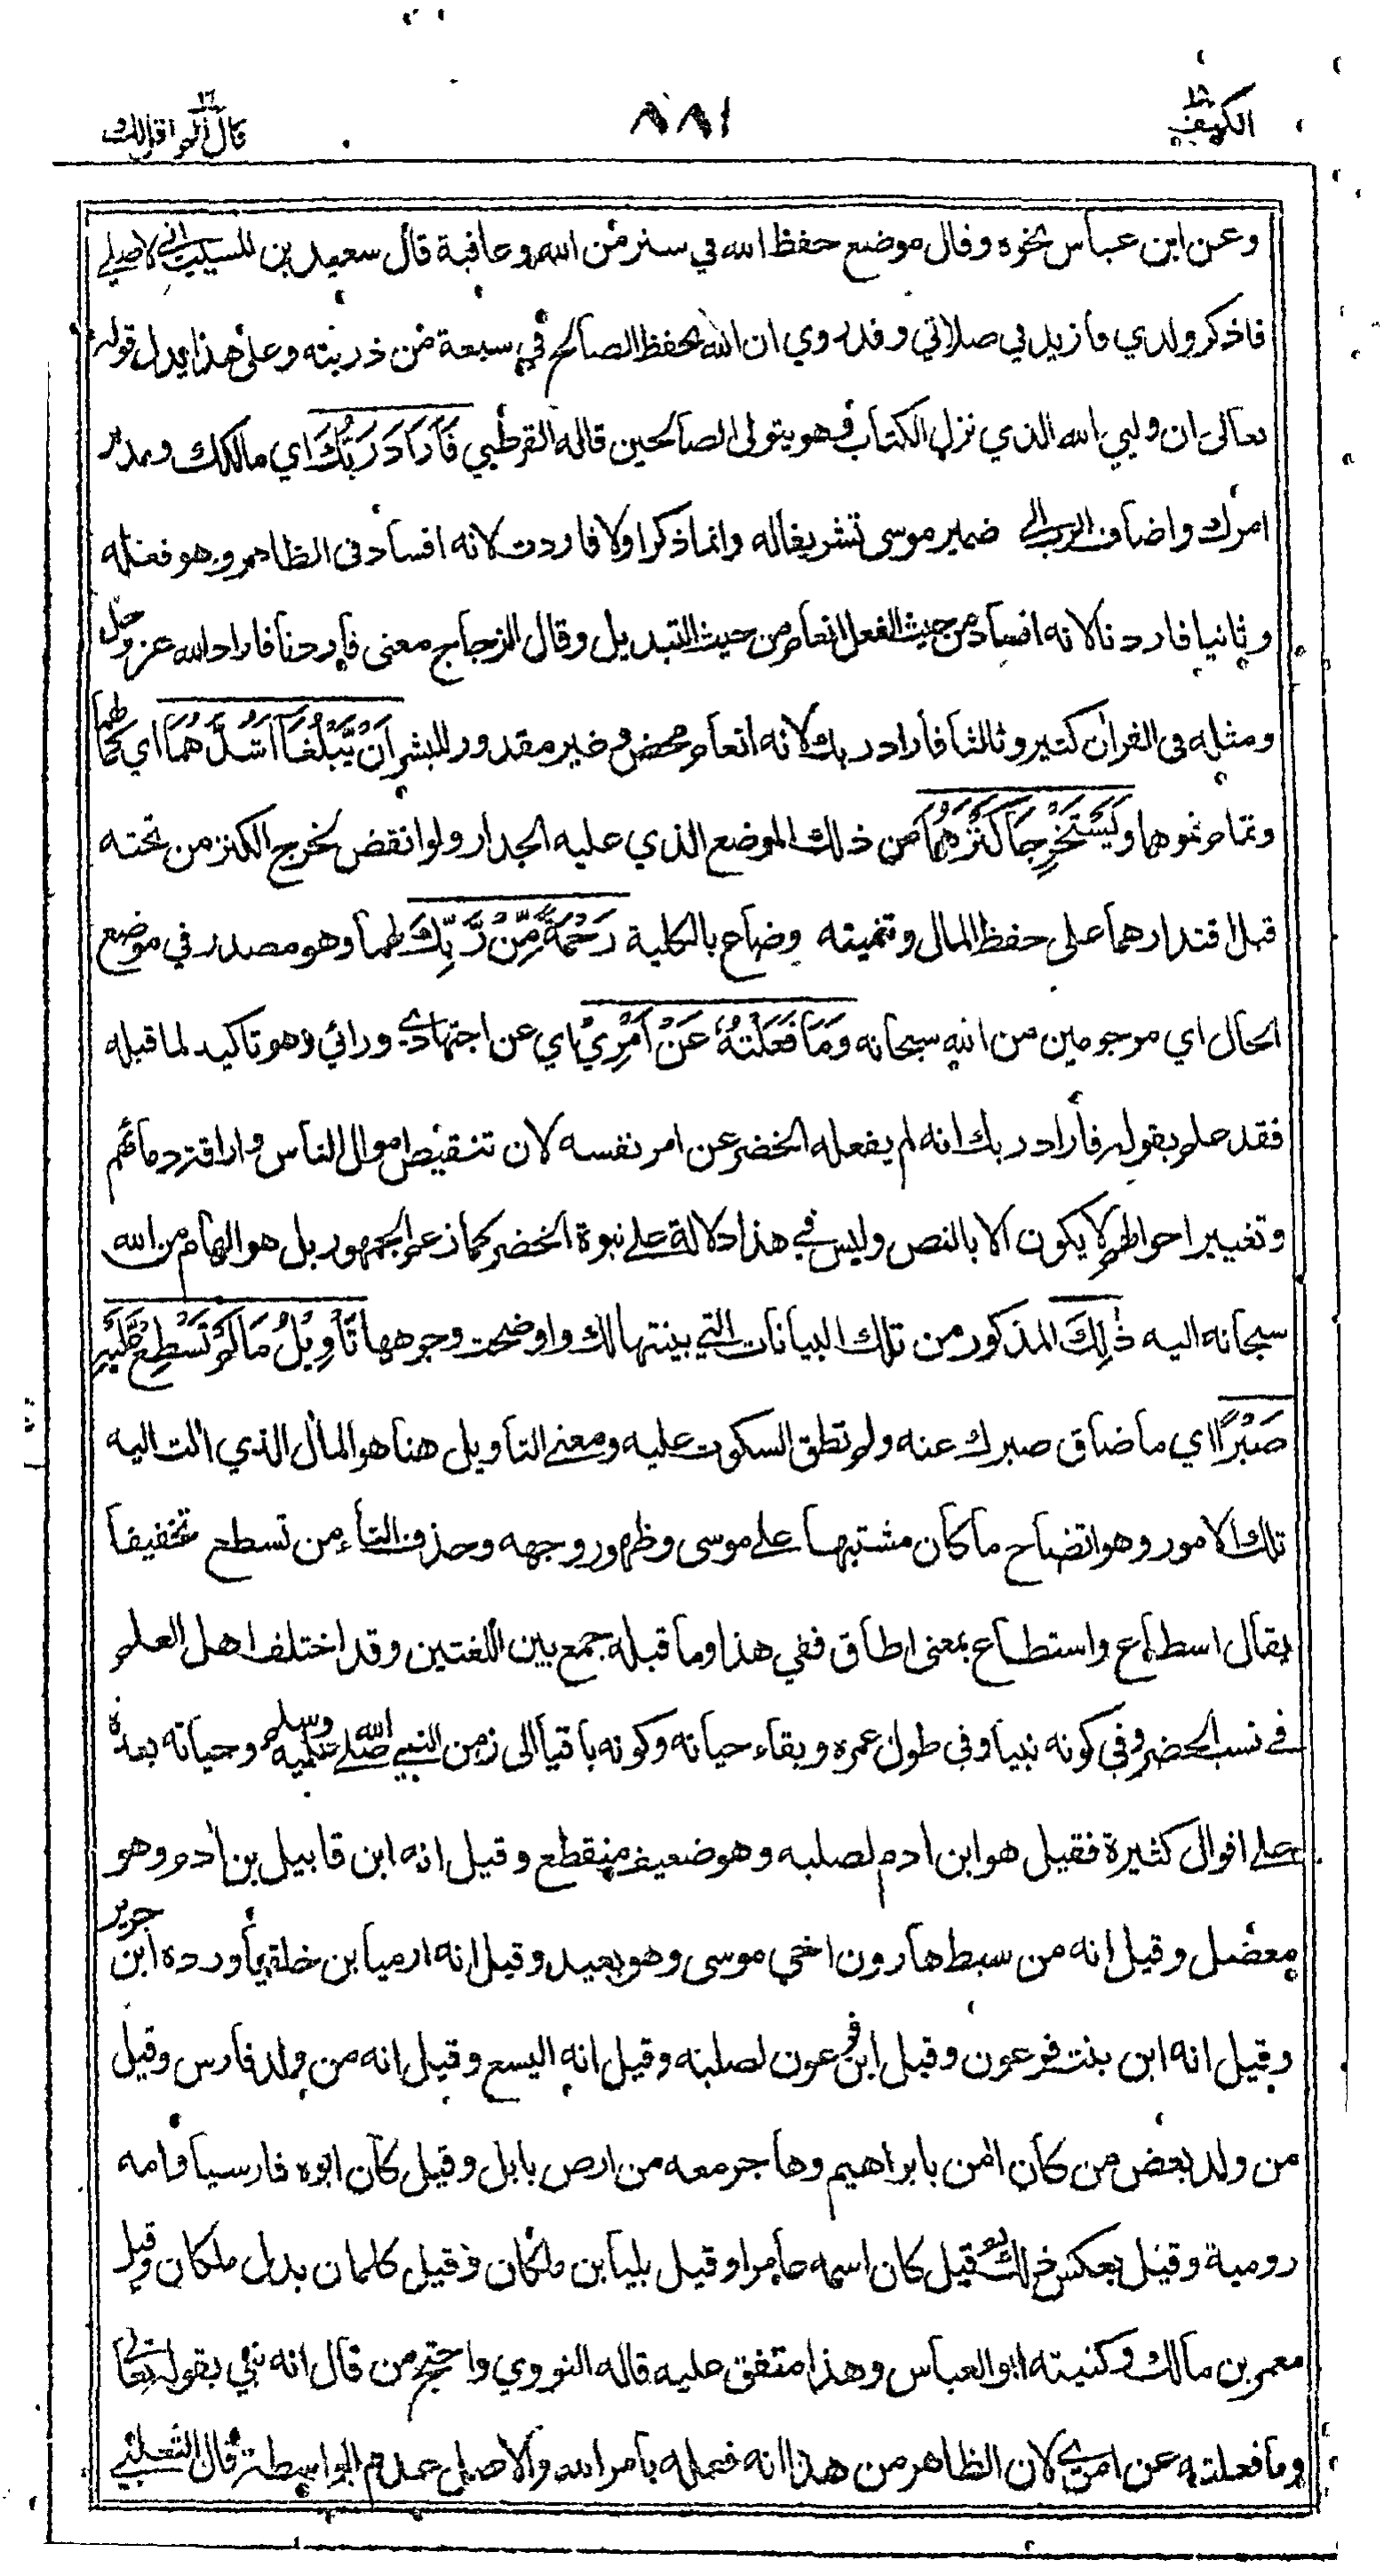 الكهف ١٨
٨٨١
قال الم اقل لك ١٦
وعن ابن عباس نحوه وقال موضع حفظ الله في ستر من الله وعافية قال سعيد بن المسيب اني لاصلي
فاذكر ولدي فازيد في صلاتي وقد روي ان الله يحفظ الصالح في سبعة من ذريته وعلى هذا يدل قوله
تعالى ان وليي الله الذي نزل الكتاب وهو يتولى الصالحين قاله القرطبي فَأَرَادَ رَبُّكَ اي مالكك ومدبر
امرك واضاف الرب الى ضمير موسى تشريفا له وانما ذكر اولا فاردت لانه افساد في الظاهر وهو فعله
وثانيا فاردنا لانه افساد من حيث الفعل انعام من حيث التبديل وقال الزجاج معنى فاردنا فاراد الله عز وجل
ومثله في القرآن كثير وثالثا فأراد ربك لانه انعام محض وغير مقدور للبشر اَنْ يَّبْلُغَآ اَشُدَّهُمَا اي كمالهما
وتمام نموهما وَيَسْتَخْرِجَا كَنْزَهُمَا من ذلك الموضع الذي عليه الجدار ولو انقض لخرج الكنز من تحته
قبل اقتدارهما على حفظ المال وتنميته وضاع بالكلية رَحْمَةً مِّنْ رَّبِّكَ لهما وهو مصدر في موضع
الحال اي مرحومين من الله سبحانه وَمَا فَعَلْتُهُ عَنْ اَمْرِيْ اي عن اجتهادي ورائي وهو تاكيد لما قبله
فقد علم بقوله فأراد ربك انه لم يفعله الخضر عن امر نفسه لان تنقيص اموال الناس واراقة دمائهم
وتغيير احوالهم لا يكون الا بالنص وليس في هذا دلالة على نبوة الخضر كما زعم الجمهور بل هو الهام من الله
سبحانه اليه ذٰلِكَ المذكور من تلك البيانات التي بينتها لك واوضحت وجوهها تَأْوِيْلُ مَا لَمْ تَسْطِعْ عَّلَيْهِ
صَبْرًا اي ما ضاق صبرك عنه ولم تطق السكوت عليه ومعنى التاويل هنا هو المآل الذي آلت اليه
تلك الامور وهو اتضاح ما كان مشتبها على موسى وظهور وجهه وحذف التاء من تسطع تخفيفا
يقال اسطاع واستطاع بمعنى اطاق ففي هذا وما قبله جمع بين اللغتين وقد اختلف اهل العلم
في نسب الخضر وفي كونه نبيا وفي طول عمره وبقاء حياته وكونه باقيا الى زمن النبي صلى الله عليه وسلم وحياته بعده
على اقوال كثيرة فقيل هو ابن آدم لصلبه وهو ضعيف منقطع وقيل انه ابن قابيل بن آدم وهو
معضل وقيل انه من سبط هارون اخي موسى وهو بعيد وقيل انه ارميا بن خلقيا ورده ابن جرير
وقيل انه ابن بنت فرعون وقيل ابن فرعون لصلبه وقيل انه اليسع وقيل انه من ولد فارس وقيل
من ولد بعض من كان آمن بابراهيم وهاجر معه من ارض بابل وقيل كان ابوه فارسيا وامه
رومية وقيل بعكس ذلك وقيل كان اسمه عامرا وقيل بليا بن ملكان وقيل كلمان بدل ملكان وقيل
معمر بن مالك وكنيته ابو العباس وهذا متفق عليه قاله النووي واحتج من قال انه نبي بقوله تعالى
وما فعلته عن امري لان الظاهر من هذا انه فعله بامر الله والاصل عدم الواسطة قال الثعلبي